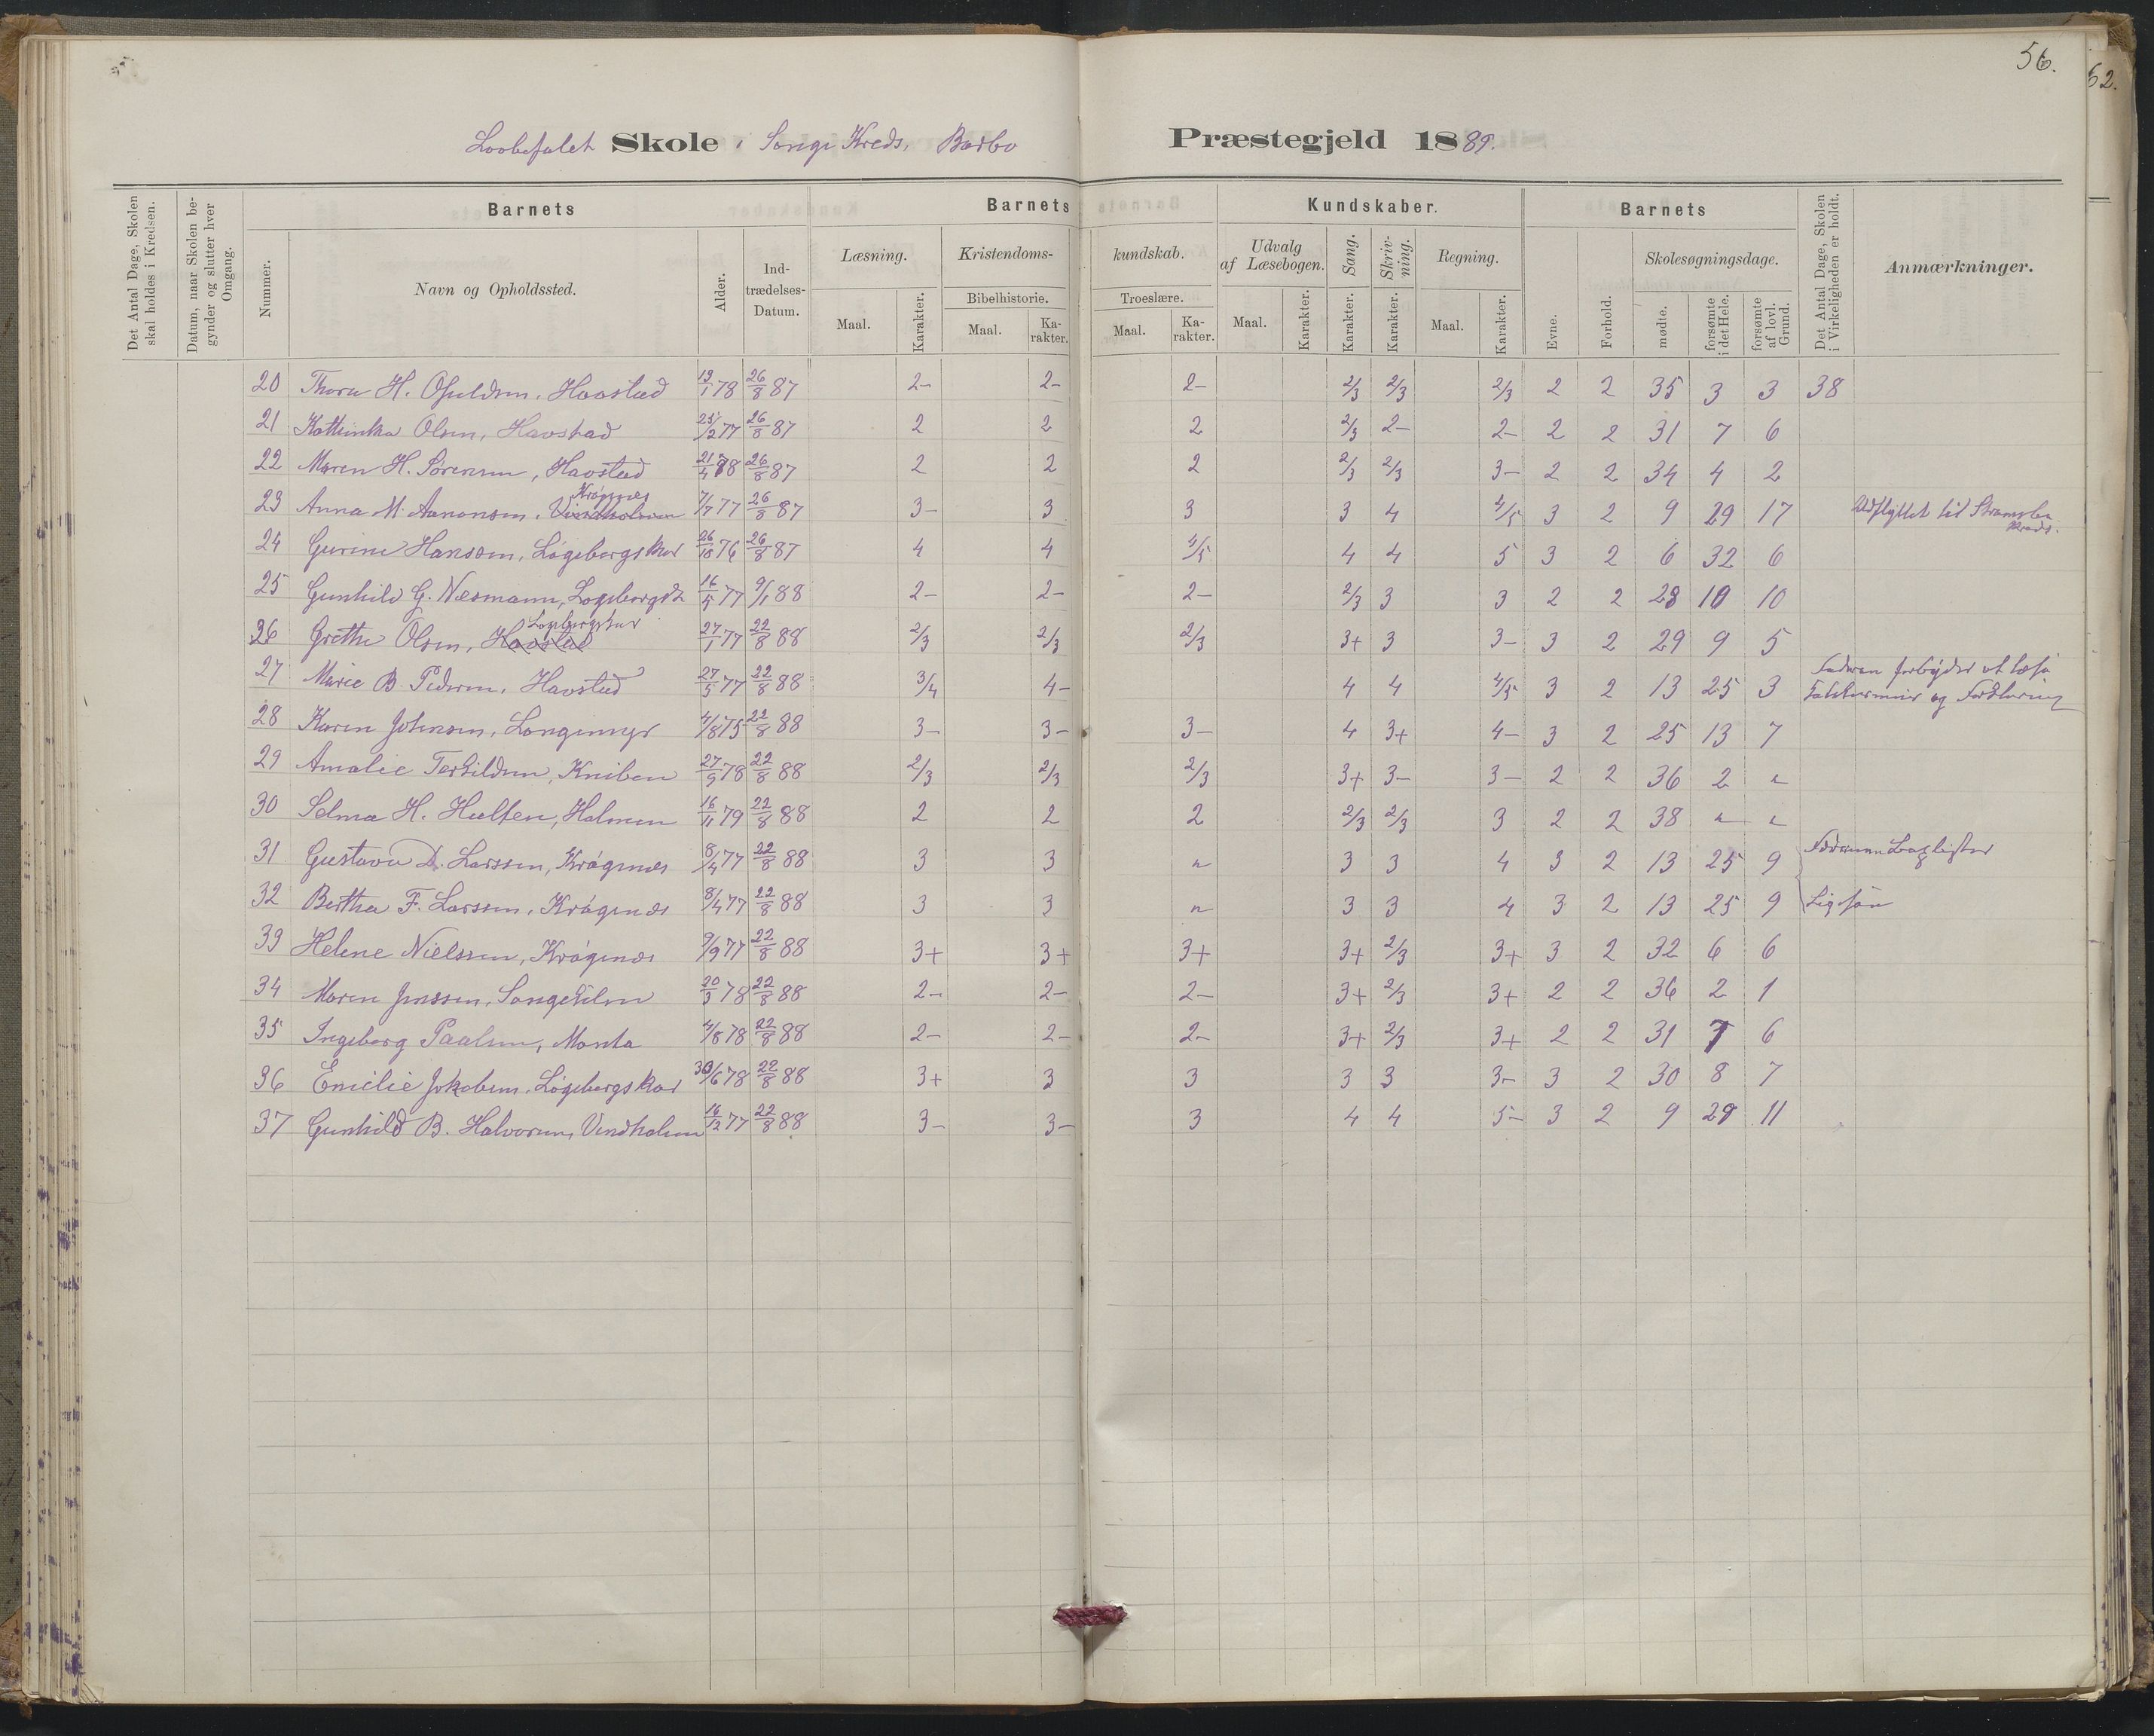 56.
62.
Skole i Songe Kreds, Barbo Præstegjeld 1889.
Det Antal Dage, Skolen skal holdes i Kredsen.
Datum, naar Skolen begynder og slutter hver Omgang.
Barnets
Nummer.
Navn og Opholdssted.
Alder.
Ind-trædelses-Datum.
Barnets Kundskaber.
Læsning.
Maal. Karakter.
Kristendoms-kundskab.
Bibelhistorie.
Maal. Ka-rakter.
Troeslære.
Maal. Ka-rakter.
Udvalg af Læsebogen.
Maal. Karakter.
Sang. Karakter.
Skriv-ning. Karakter.
Regning.
Maal. Karakter.
Barnets
Evne. Forhold.
Skolesøgningsdage.
mødte. forsømte i det Hele. forsømte af lovl. Grund.
Det Antal Dage, Skolen i Virkeligheden er holdt.
Anmærkninger.
20 Thora H. Havstad 19/1 78 26/8 87 2- 2- 2- 2/3 2/3 2/3 2 2 35 3 3 38
21 Kathinka Olsen, Havstad 25/2 77 26/8 87 2 2 2 2/3 2- 2- 2 2 31 7 6
22 Maren H. Sørensen, Havstad 21/4 78 26/8 87 2 2 2 2/3 2/3 3- 2 2 34 4 2
23 Anna M. Aanonsen, Vindholmen Krøgenes 7/7 77 26/8 87 3- 3 3 3 4 4/5 3 2 9 29 17 Udflyttet til Strømsbu Kreds.
24 Gurine Hansson, Løgebergskar 26/10 76 26/8 87 4 4 4/5 4 4 5 3 2 6 32 6
25 Gunhild G. Næsmann, Løgebergsk 16/5 77 9/1 88 2- 2- 2- 2/3 3 3 2 2 28 10 10
26 Grethe Olsen, Havstad Løgebergskar 27/1 77 22/8 88 2/3 2/3 2/3 3+ 3 3- 3 2 29 9 5
27 Marie B. Pedersen, Havstad 27/5 77 22/8 88 3/4 4- 4 4 4/5 3 2 13 25 3 Faderen forbyder at læse og Forklaring
28 Karen Johnsen, Langemyr 4/8 75 22/8 88 3- 3- 3- 4 3+ 4- 3 2 25 13 7
29 Amalie Terkildsen, Kniben 27/9 78 22/8 88 2/3 2/3 2/3 3+ 3- 3- 2 2 36 2 "
30 Selma H. Hulten, Holmen 16/11 79 22/8 88 2 2 2 2/3 2/3 3 2 2 38 " "
31 Gustava D. Larssen, Krøgenes 8/4 77 22/8 88 3 3 " 3 3 4 3 2 13 25 9
32 Bertha F. Larssen, Krøgenes 8/4 77 22/8 88 3 3 " 3 3 4 3 2 13 25 9 Ligesaa
33 Helene Nielssen, Krøgenes 9/9 77 22/8 88 3+ 3+ 3+ 3+ 2/3 3+ 3 2 32 6 6
34 Maren Jenssen, Songekilen 20/3 78 22/8 88 2- 2- 2- 3+ 2/3 3+ 2 2 36 2 1
35 Ingeborg Paalsen, Monta 4/8 78 22/8 88 2- 2- 2- 3+ 2/3 3+ 2 2 31 7 6
36 Emilie Jakobsen, Løgebergskar 30/6 78 22/8 88 3+ 3 3 3 3 3- 3 2 30 8 7
37 Gunhild B. Halvorsen, Vindholmen 16/12 77 22/8 88 3- 3- 3 4 4 5- 3 2 9 29 11